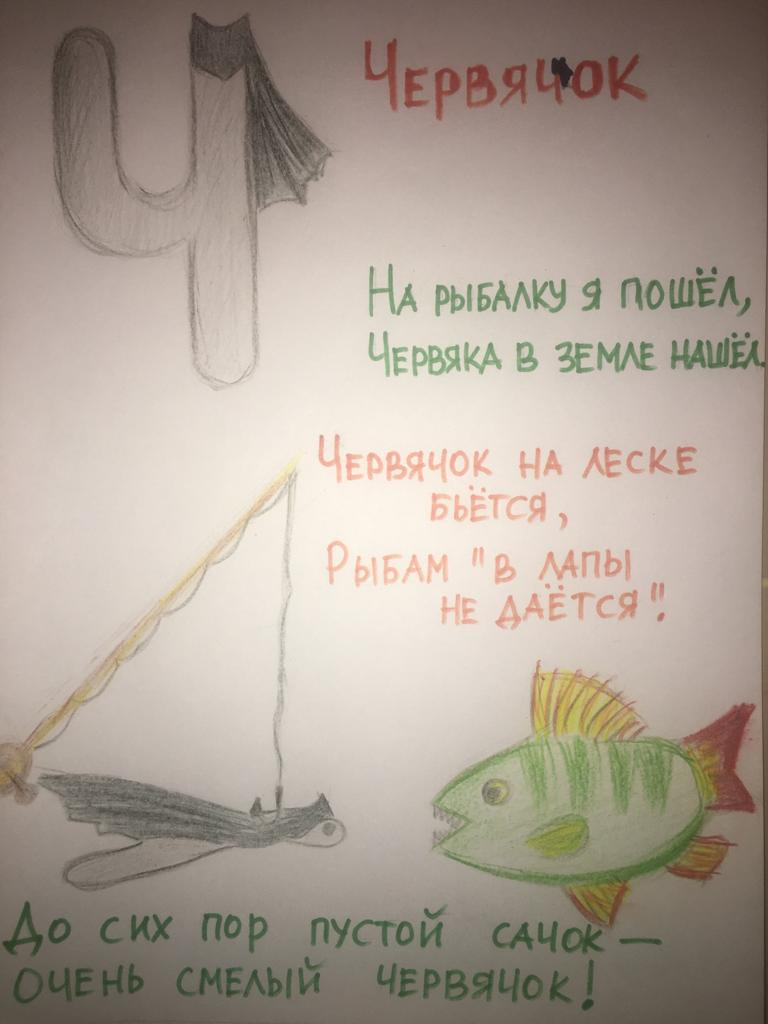 Ч
Червячок
На рыбалку я пошёл,
Червяка в земле нашёл.
Червячок на леске
бьётся,
Рыбам "в лапы
не даётся".
До сих пор пустой сачок —
очень смелый червячок!